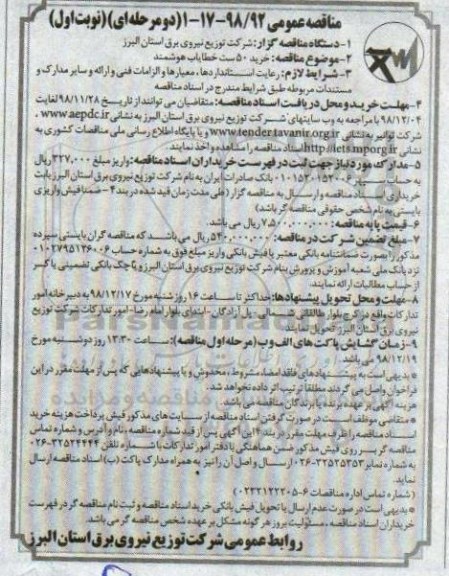 مناقصه عمومی ۹۸/۹۲-۱۷-۱(دو مرحله ای)(نوبت اول)
۱-دستگاه مناقصه گزار: شرکت توزیع نیروی برق استان البرز
۲-موضوع مناقصه: خرید ۵۰ ست خطایاب هوشمند
۳-شرایط لازم: رعایت استانداردها، معیارها و الزامات فنی و ارائه و سایر مدارک و
مستندات مربوطه طبق شرایط مندرج در اسناد مناقصه
۴-مهلت خرید و محل دریافت اسناد مناقصه: متقاضیان می توانند از تاریخ ۹۸/۱۱/۲۸ لغایت
۹۸/۱۲/۰۴ با مراجعه به وب سایتهای شرکت توزیع نیروی برق استان البرز به نشانی www.aepdc.ir،
شرکت توانیر به نشانی www.tender.tavanir.org.ir و یا پایگاه اطلاع رسانی ملی مناقصات کشوری به
نشانی http://iets.mporg.ir اسناد مناقصه را مشاهده و اخذ نمایند
۵-مدارک مورد نیاز جهت ثبت در فهرست خریداران اسناد مناقصه: واریز مبلغ ۳۲۷,۰۰۰ ریال
به حساب سپهر ۰۱۰۱۵۲۰۱۵۲۰۰۶ بانک صادرات ایران به نام شرکت توزیع نیروی برق استان البرز بابت
خریداری اسناد مناقصه و ارسال به مناقصه گزار (طی مدت زمان قید شده در بند ۴-ضمنا فیش واریزی
بایستی به نام شخص حقوقی مناقصه گر باشد)
۶-قیمت پایه مناقصه: ۷,۵۰۰,۰۰۰,۰۰۰ ریال می باشد.
۷-مبلغ تضمین شرکت در مناقصه: ۵۴۰,۰۰۰,۰۰۰ ریال می باشد که مناقصه گران بایستی سپرده
مذکور را بصورت ضمانتنامه بانکی معتبر یا فیش بانکی واریز مبلغ فوق به شماره حساب ۰۱۰۲۷۹۵۱۳۶۰۰۶
نزد بانک ملی شعبه آموزش و پرورش بنام شرکت توزیع نیروی برق استان البرز و یا چک بانکی تضمینی یا کسر
از حساب مطالبات ارائه نمایند.
۸-مهلت و محل تحویل پیشنهادها: حداکثر تا ساعت ۱۶ روز شنبه مورخ ۹۸/۱۲/۱۷ به دبیرخانه امور
تدارکات واقع در کرج بلوار طالقانی شمالی - پل آزادگان - ابتدای بلوار امام رضا - امور تدارکات شرکت توزیع
نیروی برق استان البرز تحویل نمایند.
۹-زمان گشایش پاکت های الف و ب (مرحله اول مناقصه): ساعت ۱۳:۳۰ روز دوشنبه مورخ
۹۸/۱۲/۱۹ می باشد.
* بدیهی است به پیشنهادهای فاقد امضاء، مشروط، مخدوش و یا پیشنهادهایی که پس از مهلت مقرر در این
فراخوان واصل می گردند مطلقا ترتیب اثر داده نخواهد شد.
هزینه آگهی بر عهده برنده یا برندگان مناقصه می باشد.
* متقاضی موظف است در صورت گرفتن اسناد مناقصه از سایت های مذکور فیش پرداخت هزینه خرید
اسناد مناقصه را ظرف مهلت مقرر در بند ۴ این آگهی پس از قید شماره مناقصه، نام و آدرس و شماره تماس
مناقصه گر بر روی فیش مذکور ضمن هماهنگی با دفتر امور تدارکات با شماره تلفن ۳۲۵۲۴۴۴۴-۰۲۶
به شماره نمابر ۳۲۵۲۵۳۵۳-۰۲۶ ارسال و اصل آن را نیز به همراه مدارک پاکت (ب) اسناد مناقصه ارسال
نماید.
(شماره تماس اداره مناقصات ۶-۰۲۶۳۲۱۲۲۲۰۵)
* بدیهی است در صورت عدم ارسال یا تحویل فیش بانکی خرید اسناد مناقصه و ثبت نام مناقصه گر در فهرست
خریداران اسناد مناقصه، مسئولیت بروز هر گونه مشکل بر عهده شخص مناقصه گر می باشد.
روابط عمومی شرکت توزیع نیروی برق استان البرز